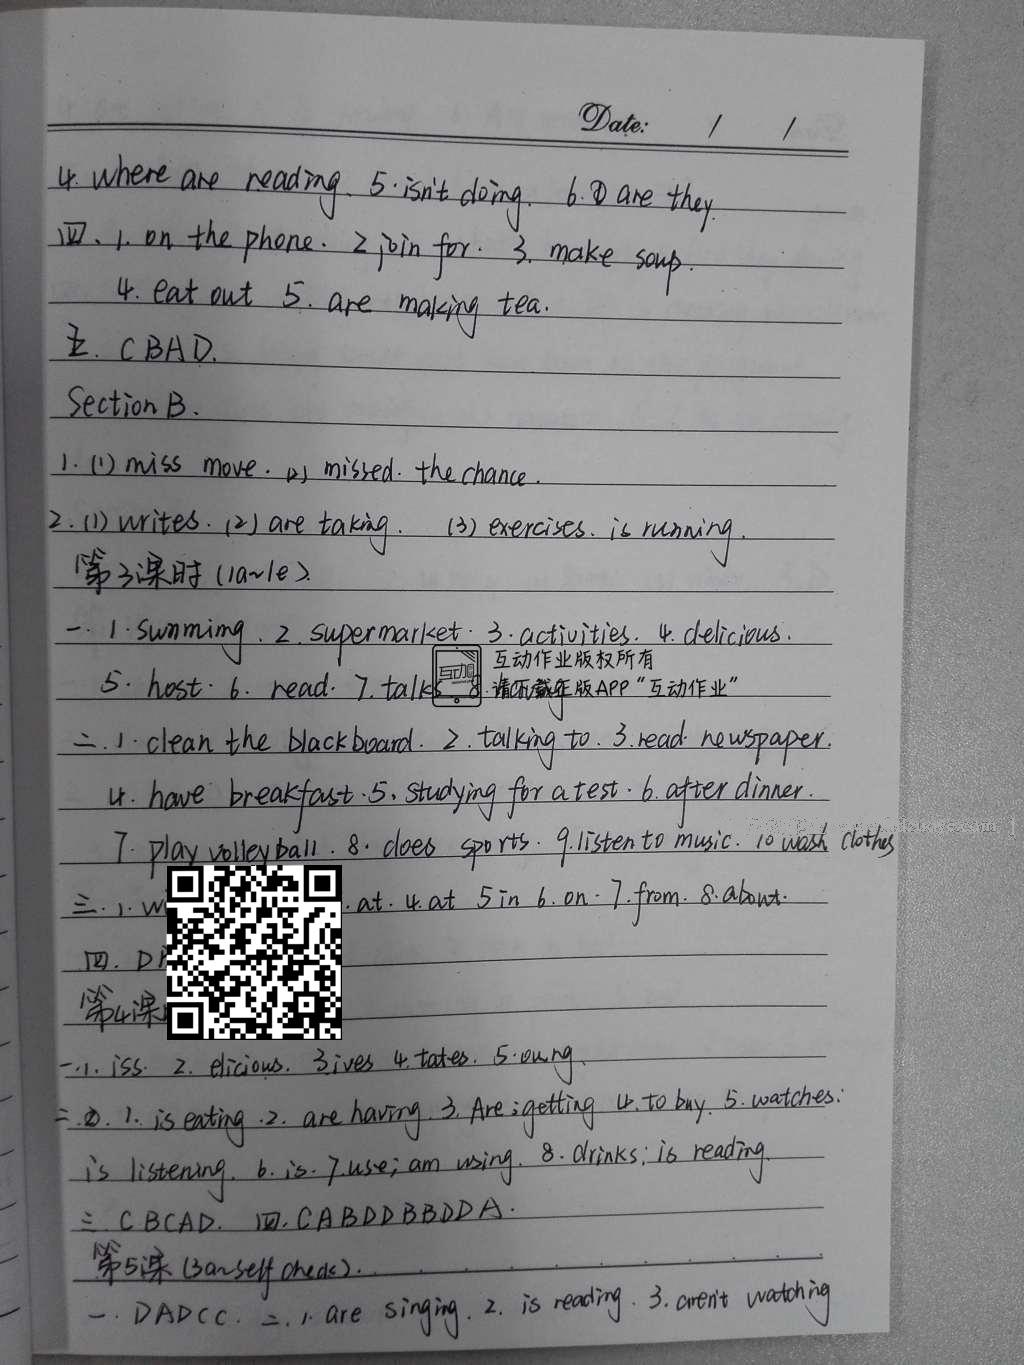 Date: / /
4. where are reading. 5. isn't doing. 6. ① are they.
四. 1. on the phone. 2 join for. 3. make soup.
4. eat out 5. are making tea.
五. CBAD.
Section B.
1. (1) miss move. (2) missed. the chance.
2. (1) writes. (2) are taking. (3) exercises. is running.
第3课时 (1a~1e).
一. 1. swnmimg. 2. supermarket. 3. activities. 4. delicious.
互动作业版权所有
5. host. 6. read. 7. talks 8.
请下载正版APP“互动作业”
二. 1. clean the blackboard. 2. talking to. 3. read newspaper.
4. have breakfast. 5. studying for a test. 6. after dinner.
7. play volleyball. 8. does sports. 9. listen to music. 10 wash clothes
三. 1. at. 4. at 5 in 6. on. 7. from. 8. about.
四. D
第4课
一. 1. iss. 2. elicious. 3. ives 4. tates. 5. oung.
二. 1. is eating. 2. are having. 3. Are; getting 4. to buy. 5. watches;
is listening. 6. is. 7. use; am using. 8. drinks; is reading.
三. CBCAD. 四. CABDDBBDDA.
第5课 (3a~self check).
一. DADCC. 二. 1. are singing. 2. is reading. 3. aren't watching